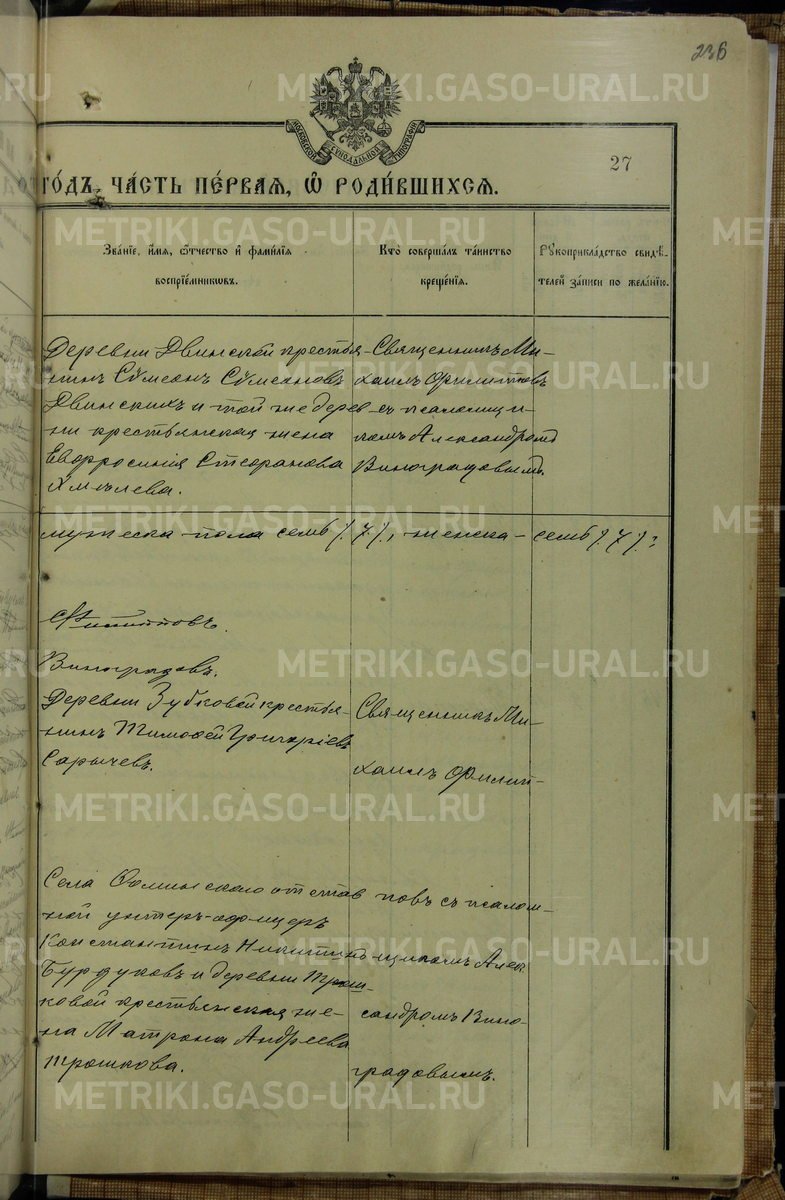 236
МОСКОВСКОЙ СѴНОДАЛЬНОЙ ТИПОГРАФІИ
27
ГО́ДЪ, ЧА́СТЬ ПЕ́РВАѦ, Ѽ РОДИ́ВШИХСѦ.
Зва́нїе, и́мѧ, ѻ҆́тчество и҆ фами́лїѧ
воспрїе́мникωвъ.
Кто̀ соверша́лъ та́инство
креще́нїѧ.
Рꙋкоприкла́дство свидѣ́-
телей за́писи по жела́нїю.
Деревни Двинской крестья-
нинъ Сѵмеонъ Сѵмеоновъ
Двинскихъ и той же дерев-
ни крестьянская жена
Евфросинія Стефанова
Хмѣлева.
Священникъ Ми-
хаилъ Филипповъ
съ псаломщи-
комъ Александромъ
Виноградовымъ.
мужеска пола семь /.7/., женска – семь /.7/.;
Филипповъ.
Виноградовъ.
Деревни Зубковой крестья-
нинъ Тимофей Григоріевъ
Сарычевъ.
Села Фоминскаго отстав-
ной унтеръ-офицеръ
Константинъ Никитинъ
Бурдуковъ и деревни Трош-
ковой крестьянская же-
на Матрона Андреева
Трошкова.
Священникъ Ми-
хаилъ Филип-
повъ съ псалом-
щикомъ Алек-
сандромъ Вино-
градовымъ.
METRIKI.GASO-URAL.RU